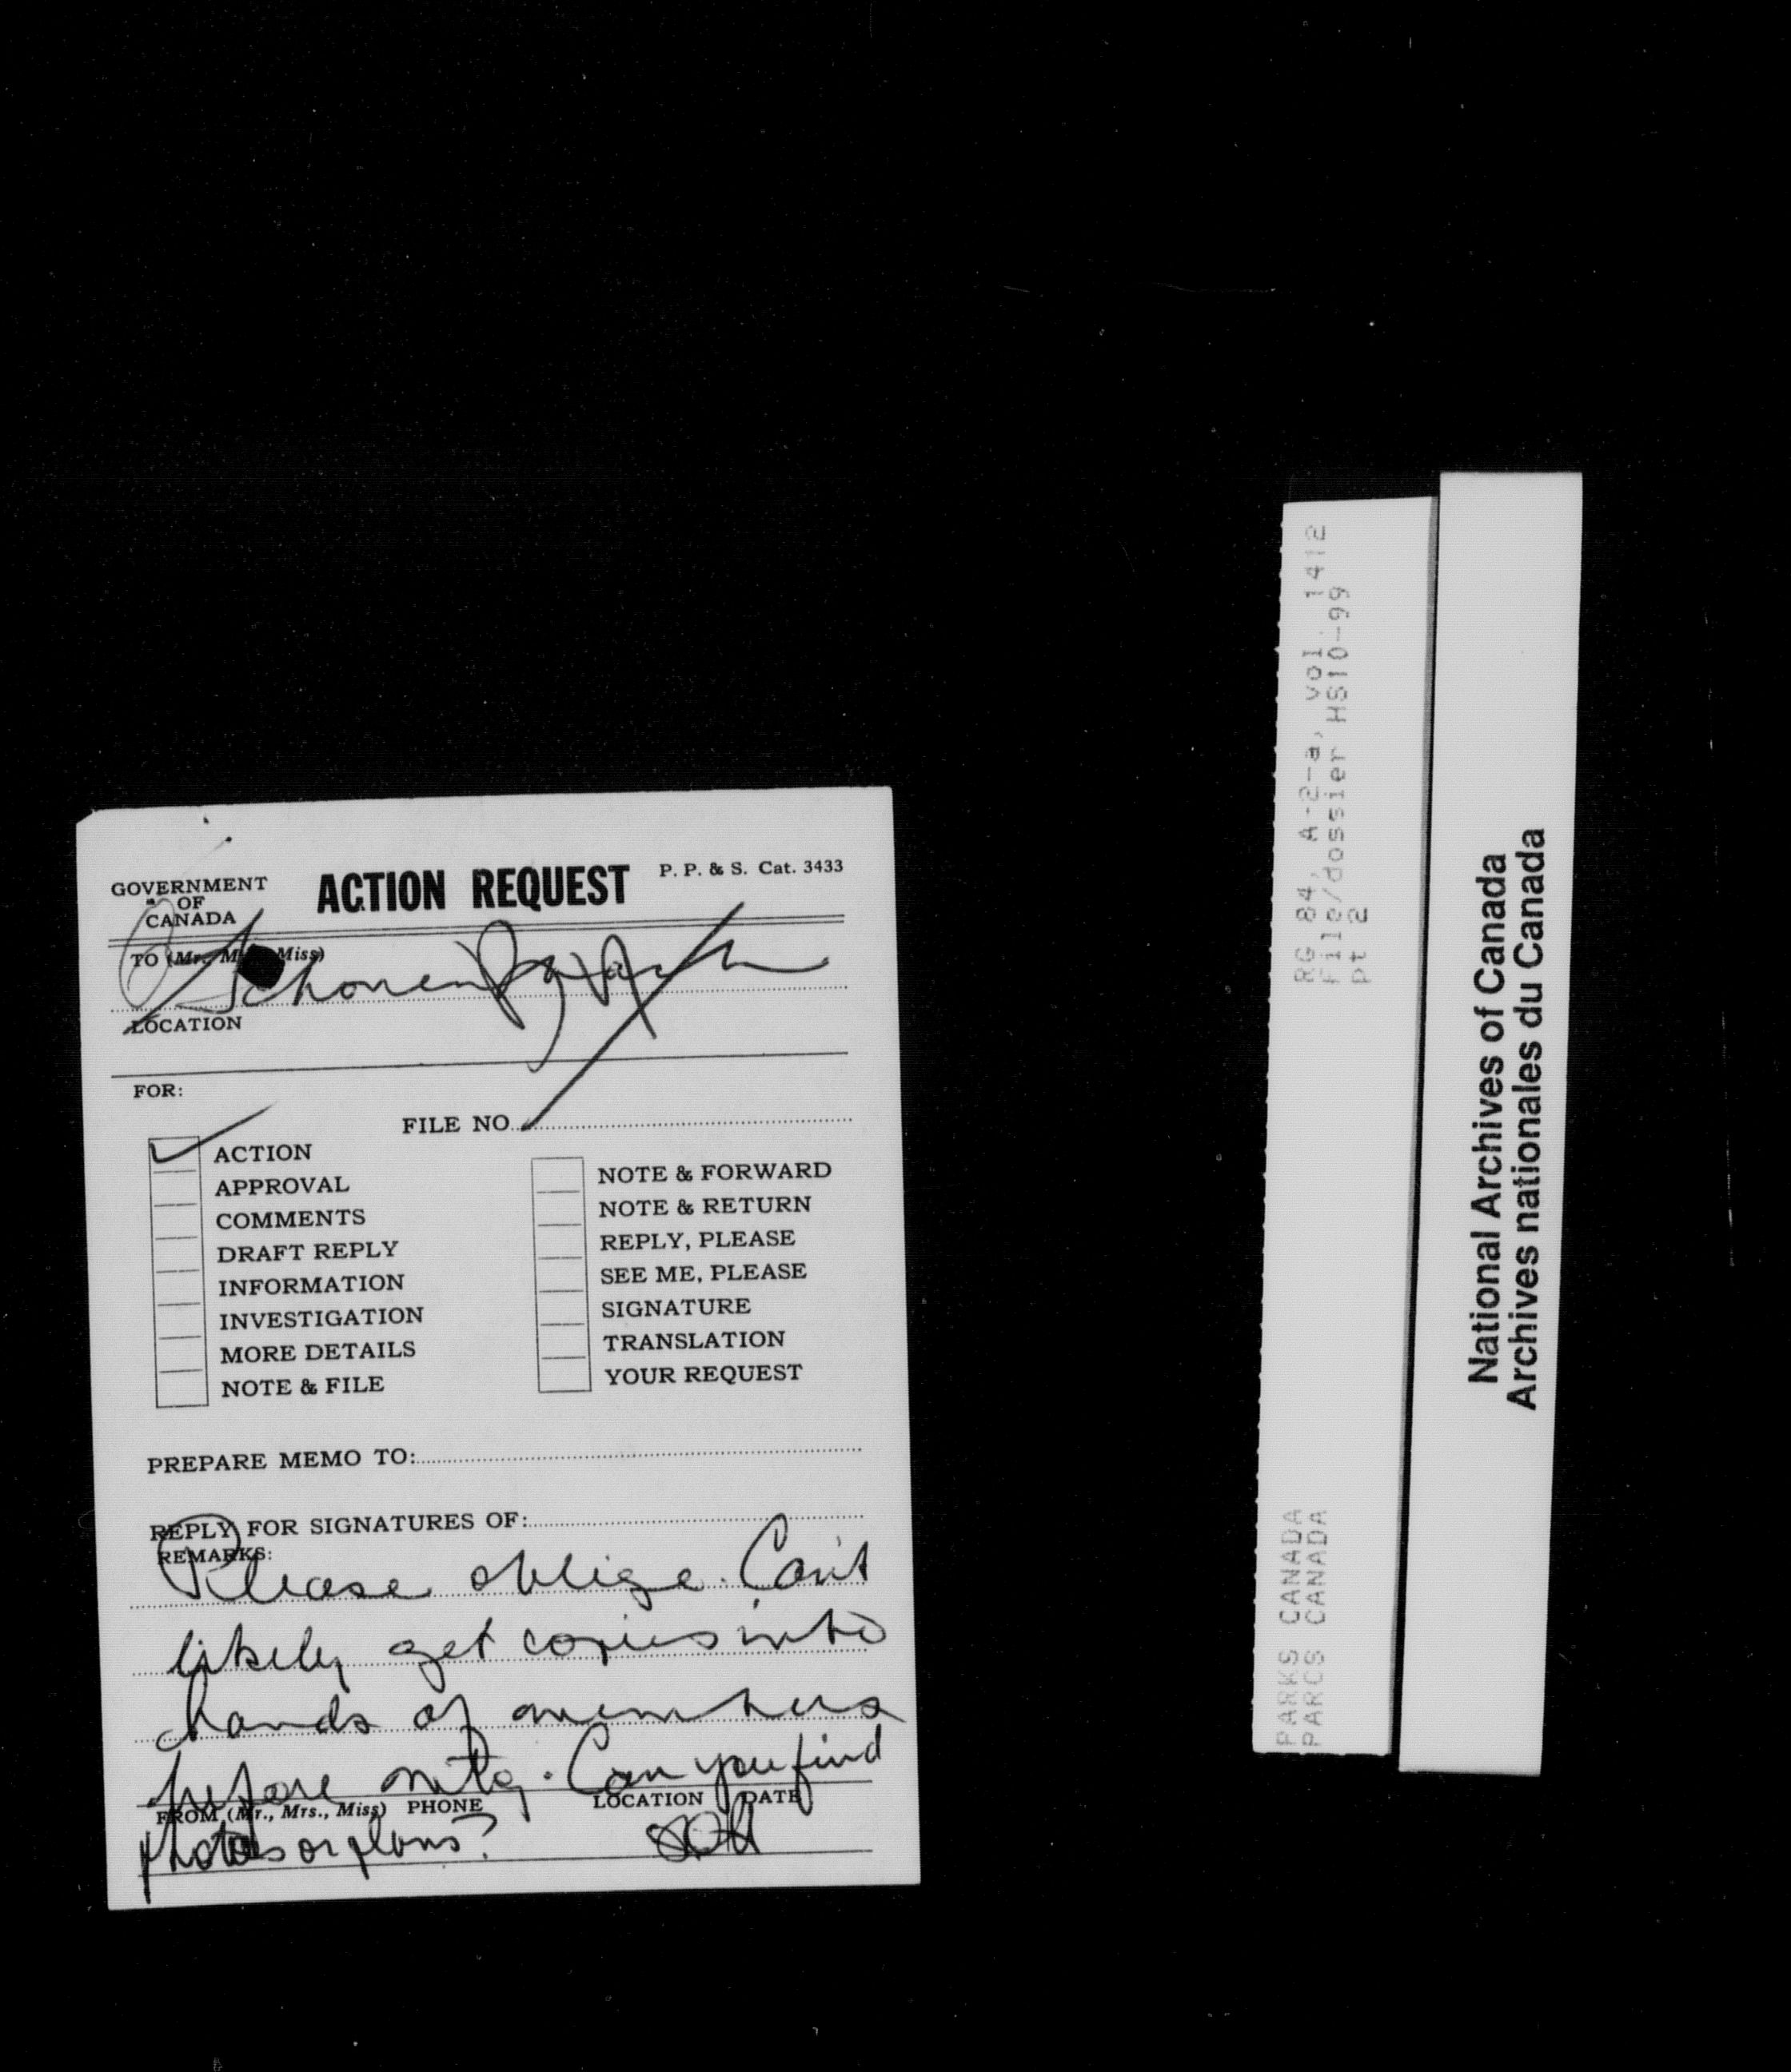 GOVERNMENT
OF
CANADA
ACTION REQUEST
P. P. & S. Cat. 3433
TO (Mr., M Miss)
LOCATION
FOR:
FILE NO.
ACTION
APPROVAL
COMMENTS
DRAFT REPLY
INFORMATION
INVESTIGATION
MORE DETAILS
NOTE & FILE
NOTE & FORWARD
NOTE & RETURN
REPLY, PLEASE
SEE ME, PLEASE
SIGNATURE
TRANSLATION
YOUR REQUEST
PREPARE MEMO TO:
REPLY FOR SIGNATURES OF:
REMARKS:
Please oblige. Can't
likely get copies into
hands of members
before mtg. Can you find
FROM (Mr., Mrs., Miss) PHONE LOCATION DATE
photos or plans?
RG 84, A-2-a, vol. 1412
File/dossier HS10-99
pt 2
PARKS CANADA
PARCS CANADA
National Archives of Canada
Archives nationales du Canada